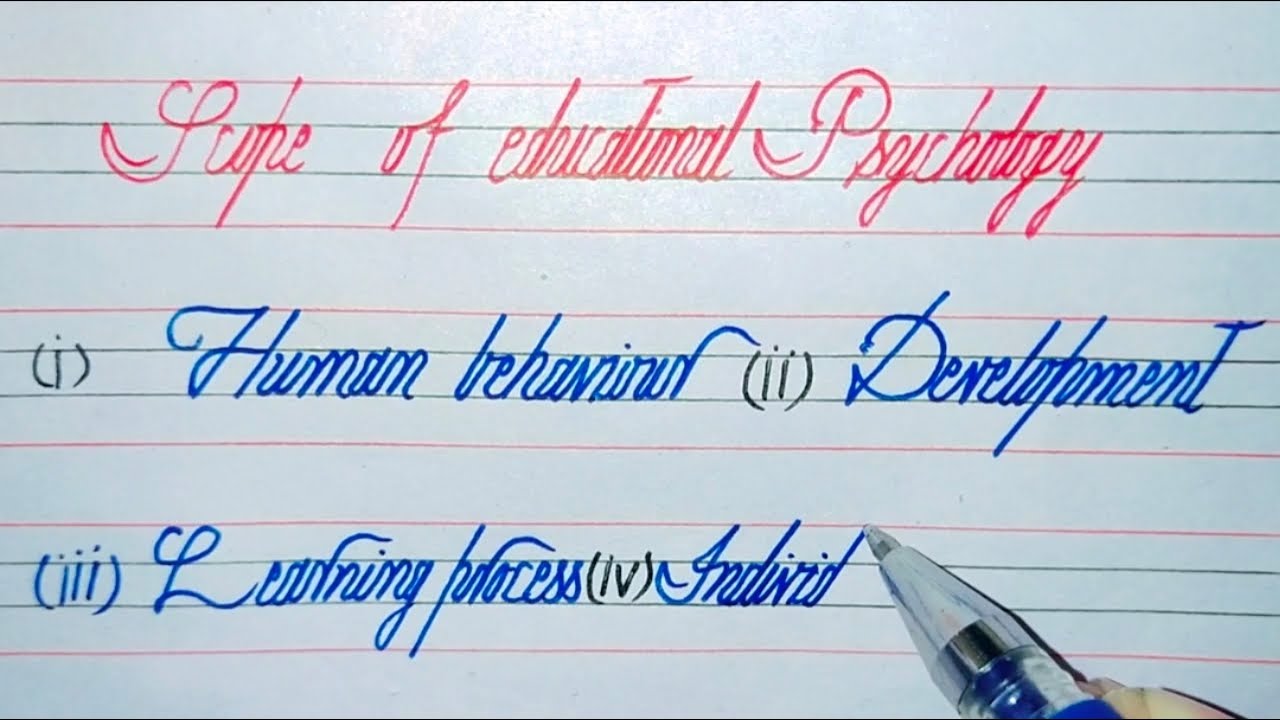 Scope of educational Psychology
(i) Human behaviour (ii) Development
(iii) Learning process (iv) Individ